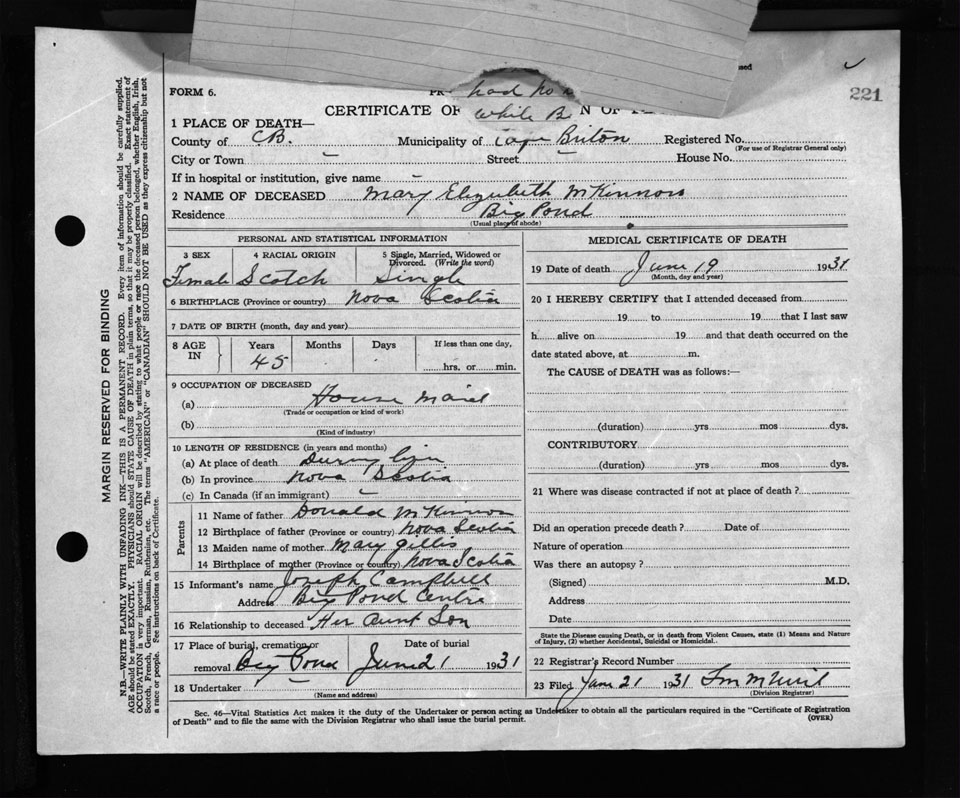 sed
FORM 6.
had no
221
CERTIFICATE OF
While B
1 PLACE OF DEATH—
County of C.B. Municipality of Cape Briton Registered No.
(For use of Registrar General only)
City or Town – Street – House No.
If in hospital or institution, give name –
2 NAME OF DECEASED Mary Elizabeth McKinnon
Residence Big Pond
(Usual place of abode)
PERSONAL AND STATISTICAL INFORMATION
3 SEX 4 RACIAL ORIGIN 5 Single, Married, Widowed or
Divorced. (Write the word)
Female Scotch Single
6 BIRTHPLACE (Province or country) Nova Scotia
7 DATE OF BIRTH (month, day and year)
8 AGE IN Years Months Days If less than one day,
45 hrs. or min.
9 OCCUPATION OF DECEASED
(a) House Maid
(Trade or occupation or kind of work)
(b)
(Kind of industry)
10 LENGTH OF RESIDENCE (in years and months)
(a) At place of death During life
(b) In province Nova Scotia
(c) In Canada (if an immigrant) –
Parents
11 Name of father Donald McKinnon
12 Birthplace of father (Province or country) Nova Scotia
13 Maiden name of mother Mary Gillis
14 Birthplace of mother (Province or country) Nova Scotia
15 Informant's name Joseph Campbell
Address Big Pond Centre
16 Relationship to deceased Her Aunt Son
17 Place of burial, cremation or Date of burial
removal Big Pond June 21 1931
18 Undertaker –
(Name and address)
MEDICAL CERTIFICATE OF DEATH
19 Date of death June 19 1931
(Month, day and year)
20 I HEREBY CERTIFY that I attended deceased from
19 to 19 that I last saw
h alive on 19 and that death occurred on the
date stated above, at m.
The CAUSE of DEATH was as follows:—
(duration) yrs mos dys.
CONTRIBUTORY
(duration) yrs. mos. dys.
21 Where was disease contracted if not at place of death?
Did an operation precede death? Date of
Nature of operation
Was there an autopsy?
(Signed) M.D.
Address
Date
State the Disease causing Death, or in death from Violent Causes, state (1) Means and Nature
of Injury, (2) whether Accidental, Suicidal or Homicidal.
22 Registrar's Record Number
23 Filed June 21 1931
(Division Registrar)
Sec. 46—Vital Statistics Act makes it the duty of the Undertaker or person acting as Undertaker to obtain all the particulars required in the "Certificate of Registration
of Death" and to file the same with the Division Registrar who shall issue the burial permit. (OVER)
MARGIN RESERVED FOR BINDING
N.B.—WRITE PLAINLY WITH UNFADING INK—THIS IS A PERMANENT RECORD. Every item of information should be carefully supplied.
AGE should be stated EXACTLY. PHYSICIANS should STATE CAUSE OF DEATH in plain terms, so that it may be properly classified. Exact statement of
OCCUPATION is very important. RACIAL ORIGIN will be described by stating to what people or race the deceased person belonged, whether English, Irish,
Scotch, French, German, Russian, Ruthenian, etc. The terms "AMERICAN" or "CANADIAN" SHOULD NOT BE USED as they express citizenship but not
a race or people. See instructions on back of Certificate.